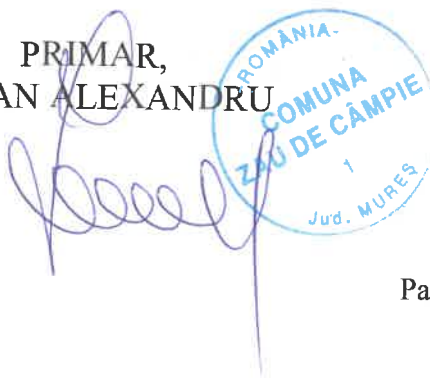 PRIMAR,
AN ALEXANDRU
-ROMÂNIA-
COMUNA
ZAU DE CÂMPIE
1
Jud. MUREȘ
Pa